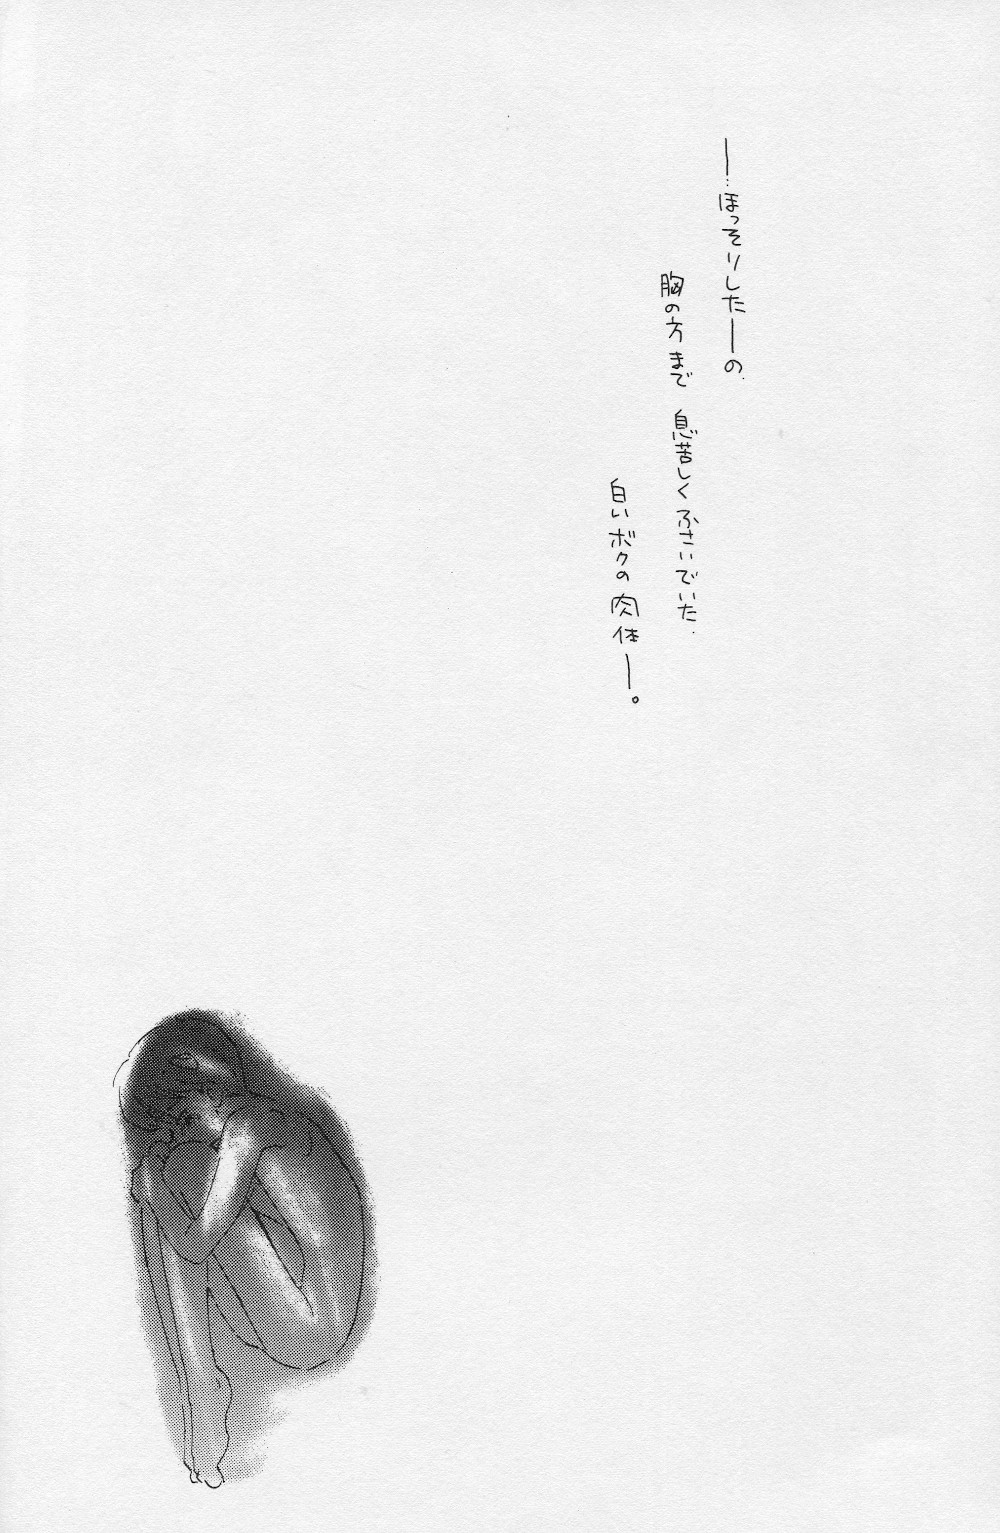 ―…ほっそりした―の.
胸の方まで 息苦しくふさいでいた.
白いボクの肉体―。